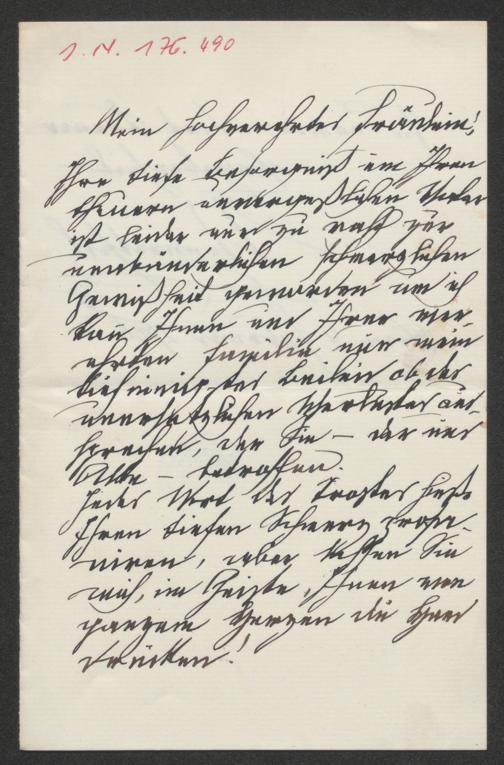 J. N. 176.490
Mein hochverehrtes Fräulein!
Ihre tiefe Besorgniß um Ihren
theuern unvergeßlichen Vater
ist leider nur zu rasch zur
unabänderlichen schmerzlichen
Gewißheit geworden und ich
kann Ihnen und Ihrer ver-
ehrten Familie nur mein
tiefinnigstes Beileid ob des
unersetzlichen Verlustes aus-
sprechen, der Sie – der uns
Alle – betroffen.
Jedes Wort des Trostes hieße
Ihren tiefen Schmerz profa-
niren, aber lassen Sie
mich, im Geiste, Ihnen von
ganzem Herzen die Hand
drücken!